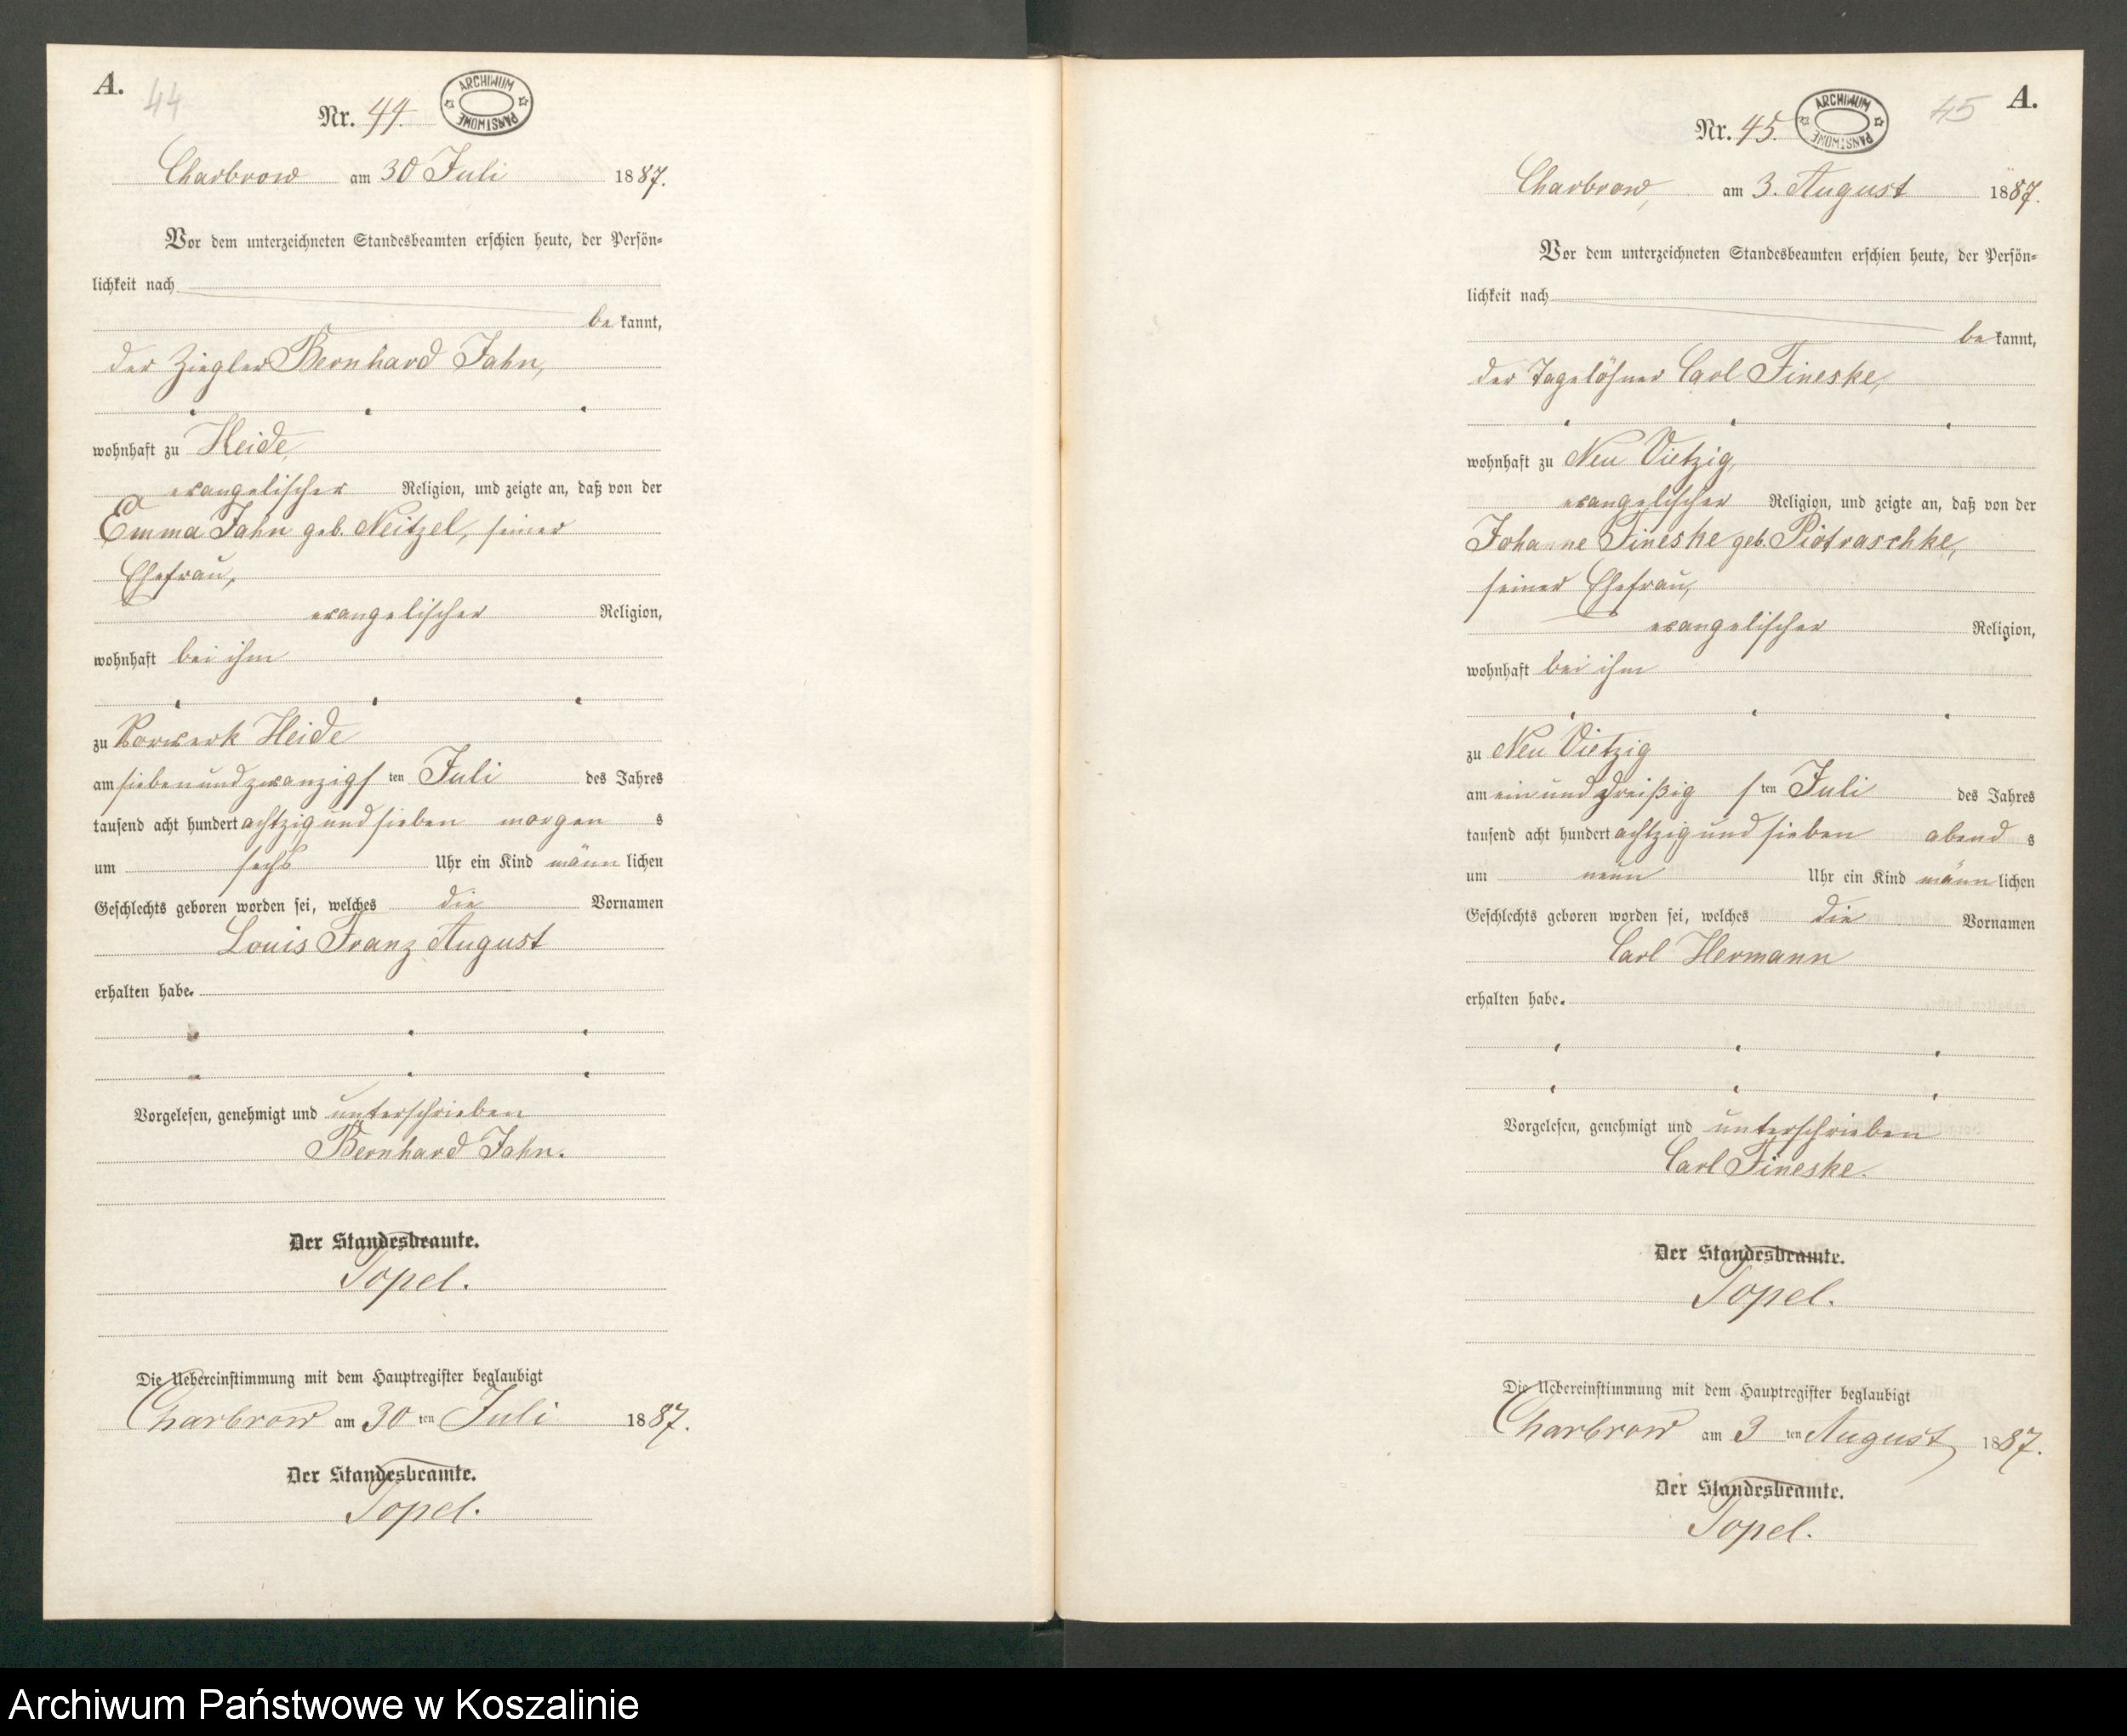 A.
44
Nr. 44.
ARCHIWUM PAŃSTWOWE
Charbrow am 30 Juli 1887.
Vor dem unterzeichneten Standesbeamten erschien heute, der Persön=
lichkeit nach
be kannt,
der Ziegler Bernhard Jahn,
wohnhaft zu Heide,
evangelischer Religion, und zeigte an, daß von der
Emma Jahn geb. Neitzel, seiner
Ehefrau,
evangelischer Religion,
wohnhaft bei ihm
zu Vorwerk Heide
am siebenundzwanzigs ten Juli des Jahres
tausend acht hundert achtzig und sieben morgen s
um sechs Uhr ein Kind männ lichen
Geschlechts geboren worden sei, welches die Vornamen
Louis Franz August
erhalten habe.
Vorgelesen, genehmigt und unterschrieben
Bernhard Jahn.
Der Standesbeamte.
Topel.
Die Uebereinstimmung mit dem Hauptregister beglaubigt
Charbrow am 30 ten Juli 1887.
Der Standesbeamte.
Topel.
A.
45
Nr. 45.
ARCHIWUM PAŃSTWOWE
Charbrow, am 3. August 1887.
Vor dem unterzeichneten Standesbeamten erschien heute, der Persön=
lichkeit nach
be kannt,
der Tagelöhner Carl Fineske,
wohnhaft zu Neu Vietzig,
evangelischer Religion, und zeigte an, daß von der
Johanne Fineske geb. Piotraschke,
seiner Ehefrau,
evangelischer Religion,
wohnhaft bei ihm
zu Neu Vietzig
am ein und dreißig s ten Juli des Jahres
tausend acht hundert achtzig und sieben abend s
um neun Uhr ein Kind männ lichen
Geschlechts geboren worden sei, welches die Vornamen
Carl Hermann
erhalten habe.
Vorgelesen, genehmigt und unterschrieben
Carl Fineske.
Der Standesbeamte.
Topel.
Die Uebereinstimmung mit dem Hauptregister beglaubigt
Charbrow am 3 ten August 1887.
Der Standesbeamte.
Topel.
Archiwum Państwowe w Koszalinie